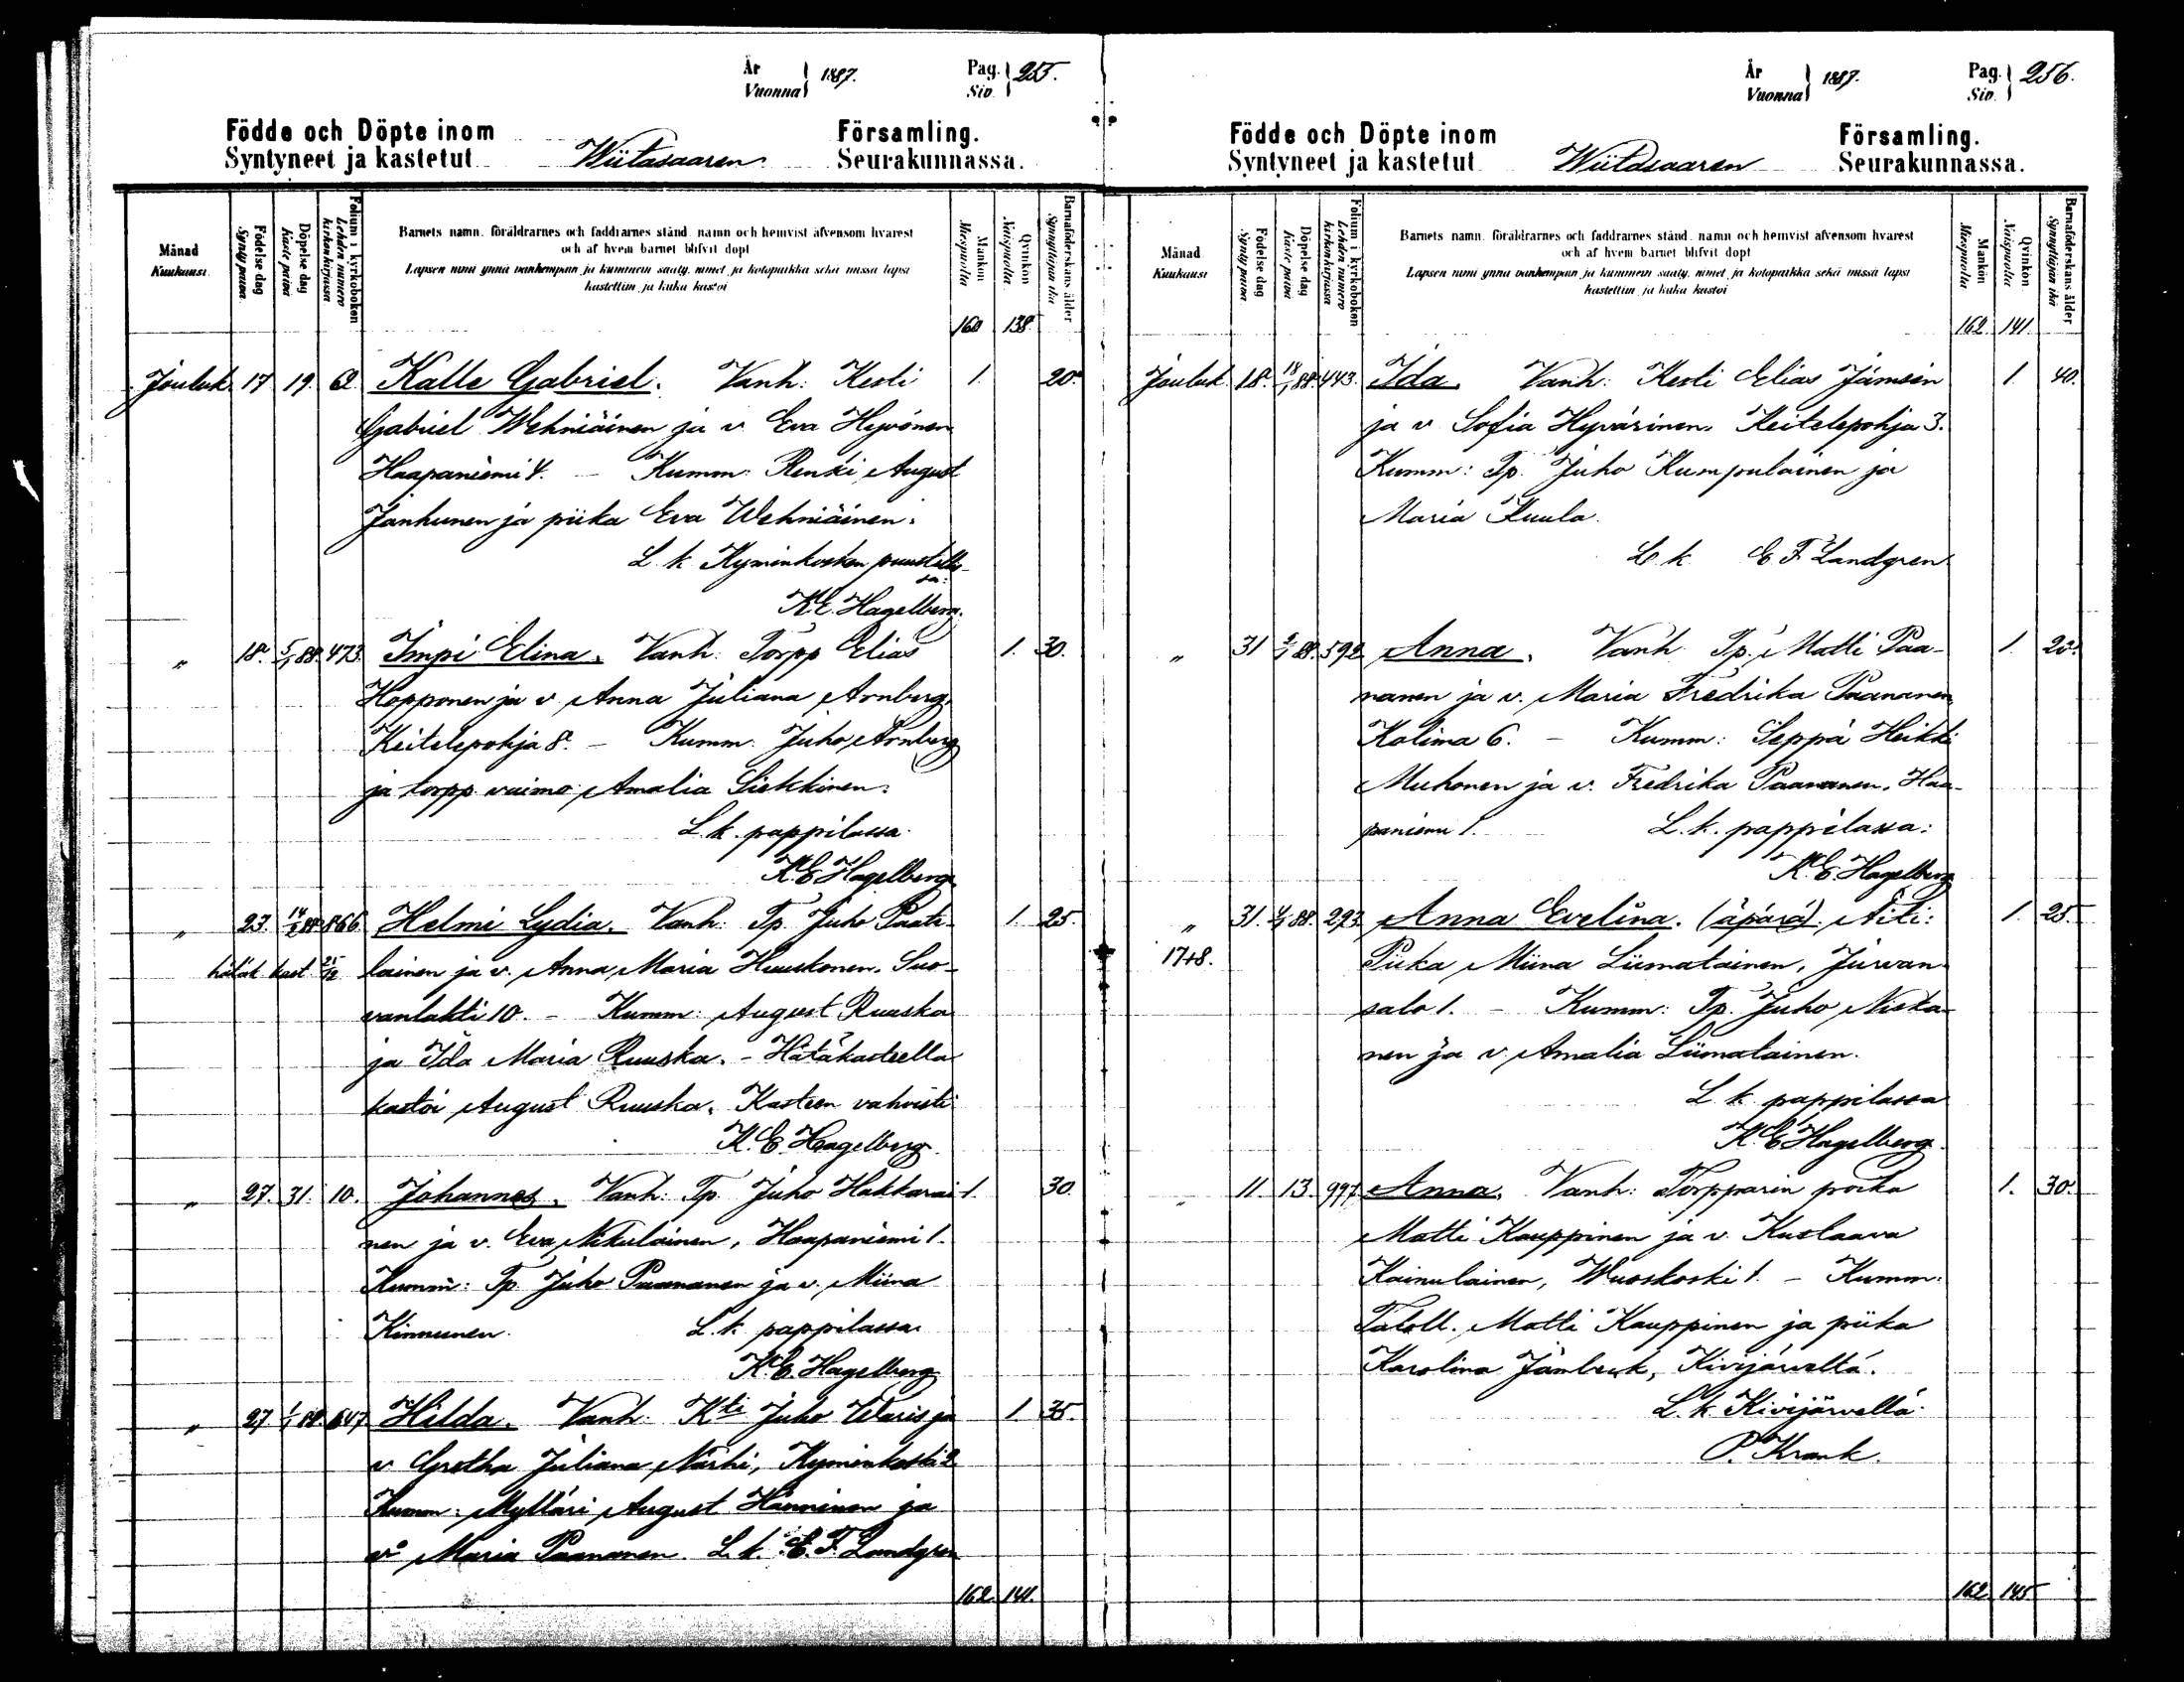 År
Vuonna } 1887.
Pag.
Siv. } 255.
Födde och Döpte inom Församling.
Syntyneet ja kastetut Wiitasaaren Seurakunnassa.
Månad
Kuukausi.
Födelse dag
Synty päivä
Döpelse dag
Kaste päivä
Folium i kyrkoboken
Lehden numero kirkonkirjassa
Barnets namn, föräldrarnes och faddrarnes stånd, namn och hemvist äfvensom hvarest
och af hvem barnet blifvit döpt
Lapsen nimi ynnä vanhempain ja kummein sääty, nimet ja kotopaikka sekä missä lapsi
kastettiin ja kuka kastoi
Mankön
Miespuolia
Qvinkön
Naispuolia
Barnaföderskans ålder
Synnyttäjän ikä
160 138
Jouluk. 17 19. Kalle Gabriel. Vanh: Kesti 1. 20.
Gabriel Wehniäinen ja v. Eva Hyvönen
Haapaniemi 4. – Kumm: Renki August
Janhunen ja piika Eva Wehniäinen.
L. k. Kyminkosken puustelli-
sa.
K. E. Hagelberg.
" 18. 5/1 88. 473. Impi Elina. Vanh: Torpp Elias 1. 30.
Hopponen ja v. Anna Juliana Arnberg,
Keitelepohja 8. – Kumm. Juho Arnberg
ja torpp vaimo Amalia Siekkinen.
L. k. pappilassa.
K. E. Hagelberg
" 23. 14/ 88 866 Helmi Lydia. Vanh: Tp. Juho Paate- 1. 25.
hätäk kast 25/12 lainen ja v. Anna Maria Huuskonen. Suo-
vanlahti 10. – Kumm: August Ruuska
ja Ida Maria Ruuska. – Hätäkasteella
kastoi August Ruuska. Kasteen vahvisti
K. E. Hagelberg.
" 27. 31. 10. Johannes. Vanh: Tp. Juho Hakkarai- 1. 30
nen ja v. Eva Nikulainen, Haapaniemi 1.
Kumm: Tp. Juho Paananen ja v. Miina
Kinnunen. L. k. pappilassa.
K. E. Hagelberg
" 27 1/1 88. 647 Hilda. Vanh: Kti Juho Waris ja 1. 35.
v Gretha Juliana Närhi, Kyminkoski 2
Kumm: Mylläri August Hänninen ja
vo Maria Paananen. L. k. E. F. Landgren
162. 141.
År
Vuonna } 1887.
Pag.
Siv. } 256.
Födde och Döpte inom Församling.
Syntyneet ja kastetut Wiitasaaren Seurakunnassa.
Månad
Kuukausi
Födelse dag
Synty päivä
Döpelse dag
Kaste päivä
Folium i kyrkoboken
Lehden numero kirkonkirjassa
Barnets namn, föräldrarnes och faddrarnes stånd, namn och hemvist äfvensom hvarest
och af hvem barnet blifvit döpt
Lapsen nimi ynnä vanhempain ja kummein sääty, nimet ja kotopaikka sekä missä lapsi
kastettiin ja kuka kastoi
Mankön
Miespuolia
Qvinkön
Naispuolia
Barnaföderskans ålder
Synnyttäjän ikä
162. 141.
Jouluk. 18. 18/1 88. 443. Ida. Vanh: Kesti Elias Jämsén 1. 40.
ja v Sofia Hyvärinen. Keitelepohja 3.
Kumm: Tp. Juho Kumpulainen ja
Maria Kuula.
L. k. E F Landgren
" 31 88. 592 Anna. Vanh. Tp. Matti Paa- 1. 20.
nanen ja v. Maria Fredrika Paananen
Kolima 6. – Kumm: Seppä Heikki
Muhonen ja v. Fredrika Paananen, Haa-
paniemi 1. L. k. pappilassa.
K. E. Hagelberg
" 31. 88. 293. Anna Evelina. (äpärä). Äiti: 1. 25.
1748. Piika Miina Liimatainen, Jurvan-
salo 1. – Kumm: Tp. Juho Niska-
nen ja v. Amalia Liimatainen.
L. k. pappilassa
K. E. Hagelberg.
" 11. 13. 997. Anna. Vanh: Torpparin poika 1. 30.
Matti Kauppinen ja v. Kustaava
Kainulainen, Wuoskoski 1. – Kumm.
Taloll. Matti Kauppinen ja piika
Karolina Jämbeck, Kivijärveltä.
L. k. Kivijärvellä.
P. Krank.
162. 145